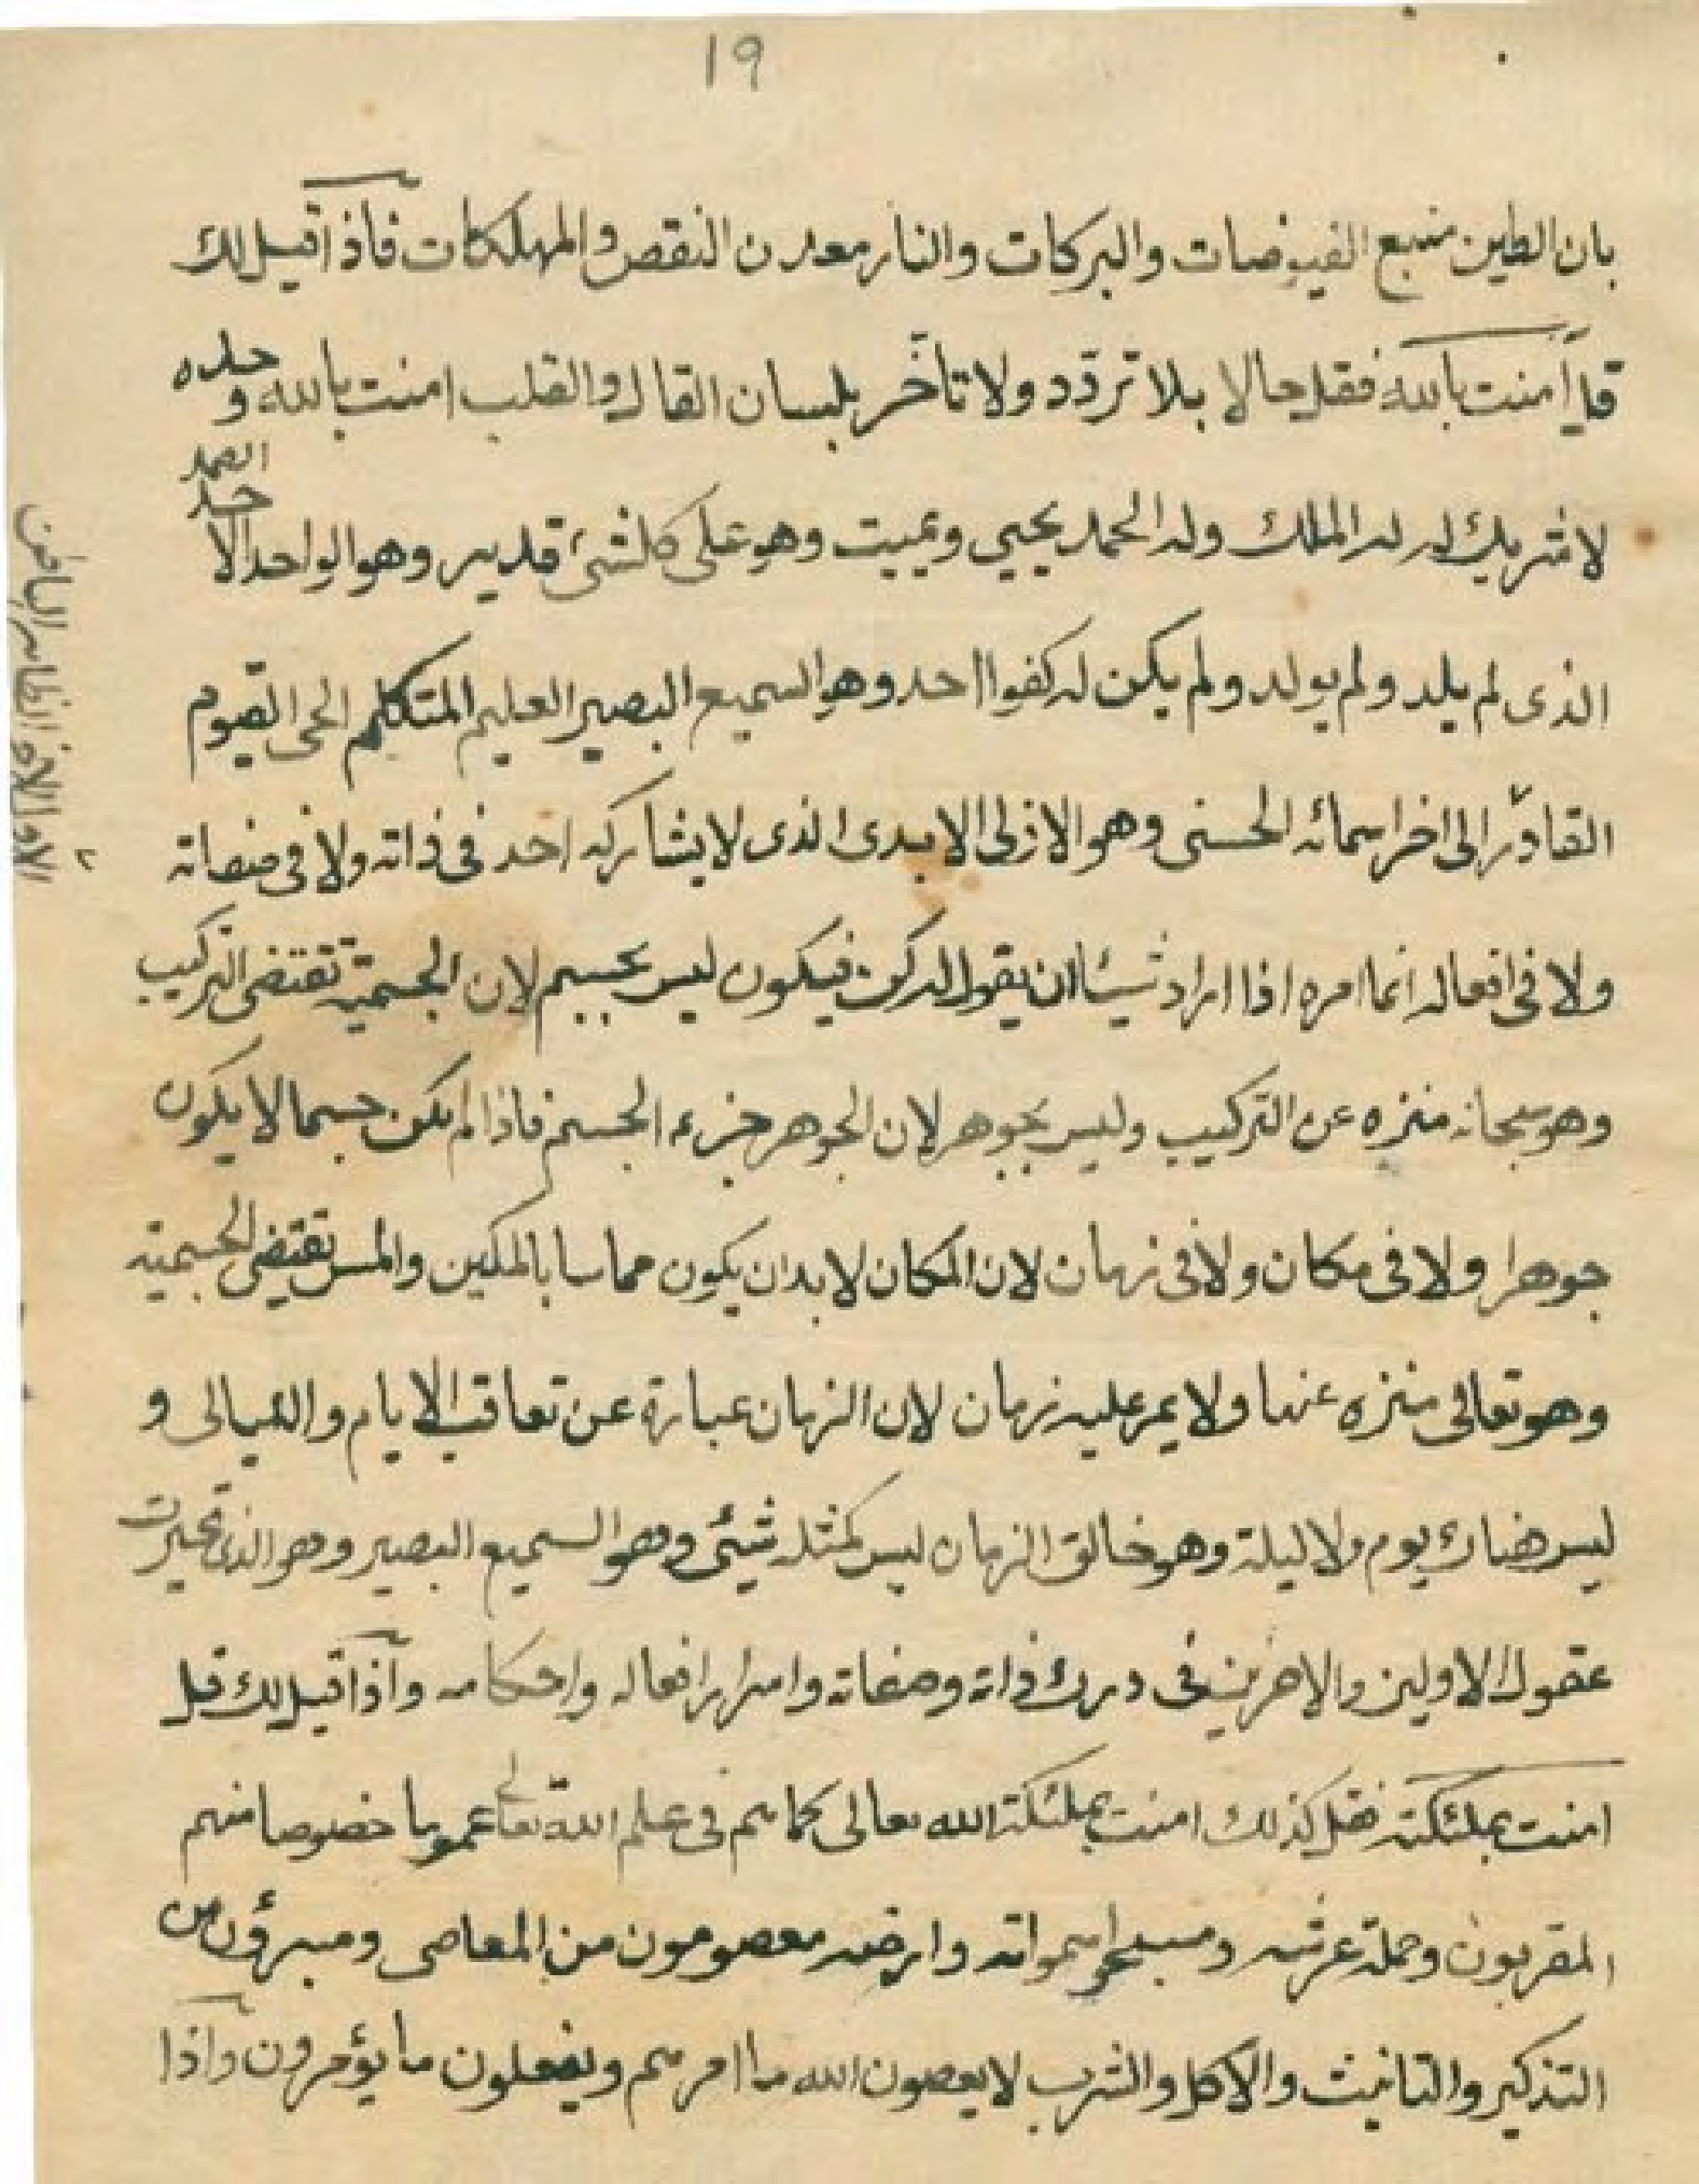 ١٩
بان الطين منبع الفيوضات والبركات والنار معدن النقص والمهلكات فاذا قيل لك
قل آمنت بالله فقل حالا بلا تردّد ولا تأخّر بلسان القال والقلب امنت بالله وحده
لا شريك له له الملك وله الحمد يحيي ويميت وهو على كلشئ قدير وهو الواحد الاحد الصمد
الذى لم يلد ولم يولد ولم يكن له كفوا احد وهو السميع البصير العليم المتكلم الحى القيوم
القادر الى اخر اسمائه الحسنى وهو الازلى الابدى الذى لا يشاركه احد فى ذاته ولا فى صفاته
ولا فى افعاله انما امره اذا اراد شيئا ان يقول له كن فيكون ليس بجسم لان الجسمية تقتضى التركيب
وهو سبحانه منزه عن التركيب وليس بجوهر لان الجوهر جزء الجسم فاذا لم يكن جسما لا يكون
جوهرا ولا فى مكان ولا فى زمان لان المكان لا بد ان يكون مماسا بالمكين والمس تقتضى الجسمية
وهو تعالى منزه عنها ولا يمر عليه زمان لان الزمان عبارة عن تعاقب الايام والليالى و
ليس هناك يوم ولا ليلة وهو خالق الزمان ليس كمثله شيئ وهو السميع البصير وهو الذى تحيرت
عقول الاولين والاخرين فى درك ذاته وصفاته واسرار افعاله واحكامه واذا قيل لك قل
امنت بملئكته فقل كذلك امنت بملئكة الله تعالى كما هم فى علم الله تعالى عموما خصوصا منهم
المقربون وحملة عرشه ومسبحوا سمواته وارضه معصومون من المعاصى ومبرؤن من
التذكير والتانيث والاكل والشرب لا يعصون الله ما امرهم ويفعلون ما يؤمرون واذا
الاول الاخر الظاهر الباطن